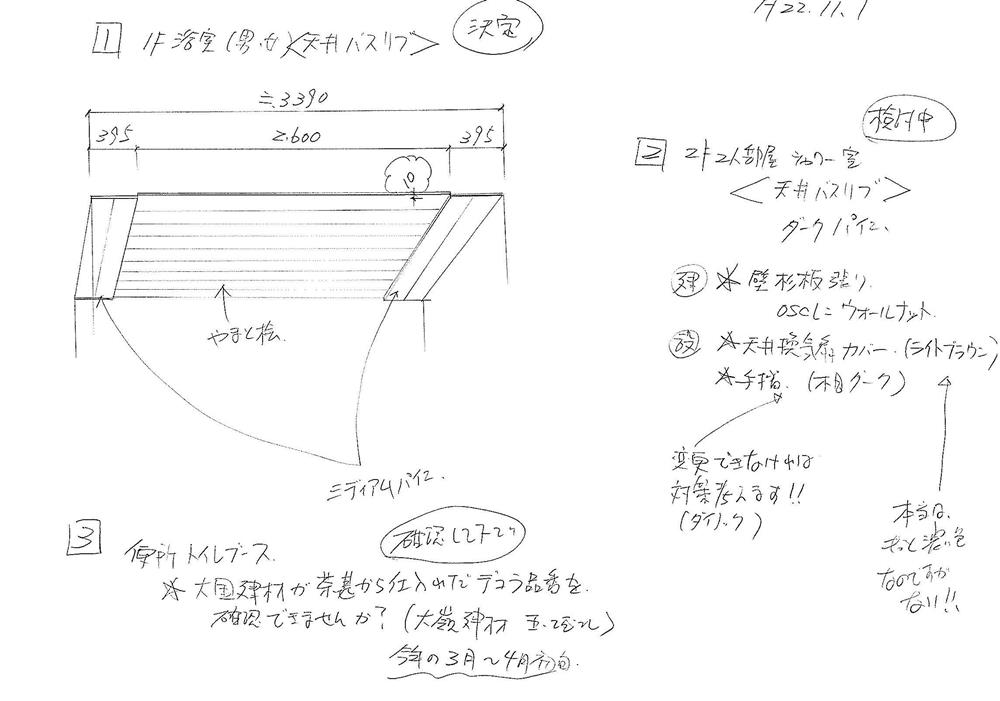 H22.11.1
1 1F 浴室(男・女)<天井バスリブ> 決定
≒3390
395 2.600 395
10
やまと桧
ミディアムパイン
検討中
2 2F 2人部屋 シャワー室
<天井バスリブ>
ダークパイン
建 ※ 壁杉板張り
OSCL=ウォールナット
設 ※ 天井換気扇カバー(ライトブラウン)
※ 手摺(木目ダーク)
変更できなければ
対策考えます!!
(ダイノック)
本当は、
もっと濃い色
なのですが
ない!!
3 便所 トイレブース 確認して下さい
※ 大国建材が から仕入れたデコラ品番を
確認できませんか?(大嶺建材
今年の3月〜4月初旬